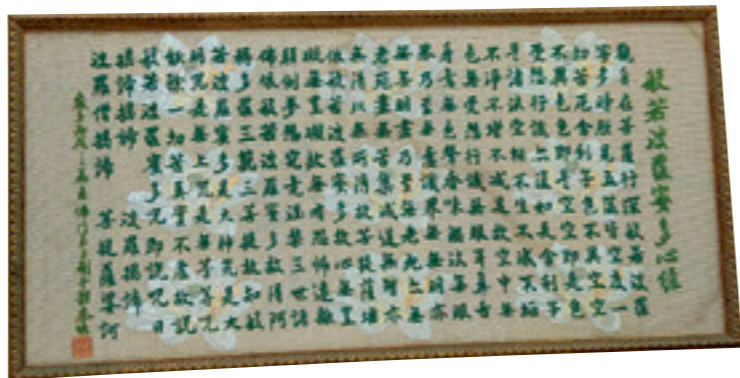 般若波羅蜜多心經
觀自在菩薩行深般若波羅
蜜多時照見五蘊皆空度一
切苦厄舍利子色不異空空
不異色色即是空空即是色
受想行識亦復如是舍利子
是諸法空相不生不滅不垢
不淨不增不減是故空中無
色無受想行識無眼耳鼻舌
身意無色聲香味觸法無眼
界乃至無意識界無無明亦
無無明盡乃至無老死亦無
老死盡無苦集滅道無智亦
無得以無所得故菩提薩埵
依般若波羅蜜多故心無罣
礙無罣礙故無有恐怖遠離
顛倒夢想究竟涅槃三世諸
佛依般若波羅蜜多故得阿
耨多羅三藐三菩提故知般
若波羅蜜多是大神咒是大
明咒是無上咒是無等等咒
能除一切苦真實不虛故說
般若波羅蜜多咒即說咒曰
揭諦揭諦 波羅揭諦
波羅僧揭諦 菩提薩婆訶